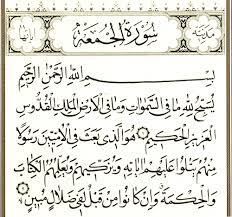 مدنية سُورَةُ الْجُمُعَةِ آياتها
بِسْمِ اللَّهِ الرَّحْمَنِ الرَّحِيمِ
يُسَبِّحُ لِلَّهِ مَا فِي السَّمَوَاتِ وَمَا فِي الْأَرْضِ الْمَلِكِ الْقُدُّوسِ
الْعَزِيزِ الْحَكِيمِ هُوَ الَّذِي بَعَثَ فِي الْأُمِّيِّينَ رَسُولًا
مِنْهُمْ يَتْلُوا عَلَيْهِمْ آيَاتِهِ وَيُزَكِّيهِمْ وَيُعَلِّمُهُمُ الْكِتَابَ
وَالْحِكْمَةَ وَإِنْ كَانُوا مِنْ قَبْلُ لَفِي ضَلَالٍ مُبِينٍ